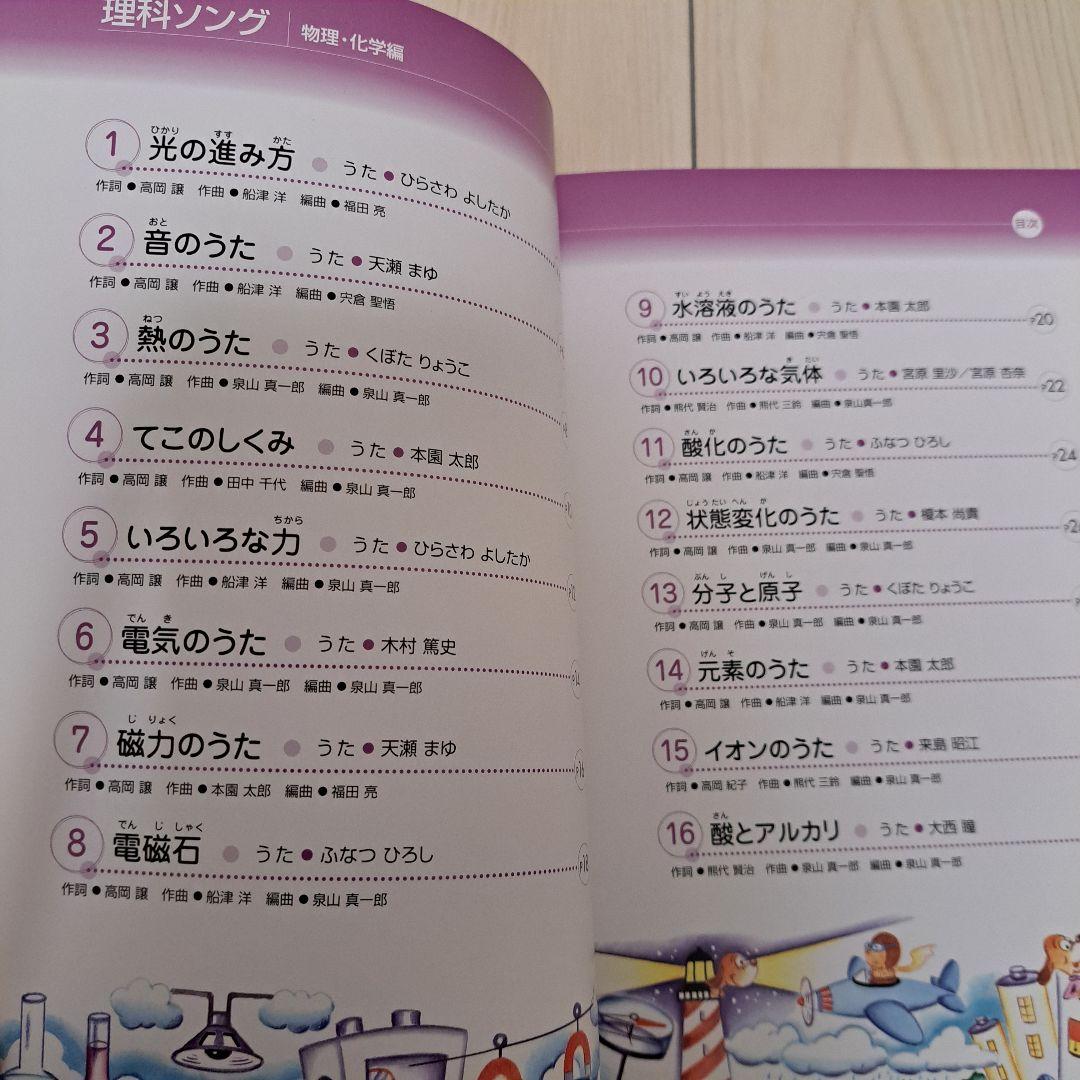 理科ソング 物理・化学編
1 光の進み方 うた●ひらさわ よしたか
ひかり すす かた
作詞●高岡 譲 作曲●船津 洋 編曲●福田 亮
2 音のうた うた●天瀬 まゆ
おと
作詞●高岡 譲 作曲●船津 洋 編曲●宍倉 聖悟
3 熱のうた うた●くぼた りょうこ
ねつ
作詞●高岡 譲 作曲●泉山 真一郎 編曲●泉山 真一郎
4 てこのしくみ うた●本園 太郎
作詞●高岡 譲 作曲●田中 千代 編曲●泉山 真一郎
5 いろいろな力 うた●ひらさわ よしたか
ちから
作詞●高岡 譲 作曲●船津 洋 編曲●泉山 真一郎
6 電気のうた うた●木村 篤史
でん き
作詞●高岡 譲 作曲●泉山 真一郎 編曲●泉山 真一郎
7 磁力のうた うた●天瀬 まゆ P16
じ りょく
作詞●高岡 譲 作曲●本園 太郎 編曲●福田 亮
8 電磁石 うた●ふなつ ひろし P18
でん じ しゃく
作詞●高岡 譲 作曲●船津 洋 編曲●泉山 真一郎
目次
9 水溶液のうた うた●本園 太郎 P20
すい よう えき
作詞●高岡 譲 作曲●船津 洋 編曲●宍倉 聖悟
10 いろいろな気体 うた●宮原 里沙/宮原 杏奈 P22
き たい
作詞●熊代 賢治 作曲●熊代 三鈴 編曲●泉山真一郎
11 酸化のうた うた●ふなつ ひろし P24
さん か
作詞●高岡 譲 作曲●船津 洋 編曲●宍倉 聖悟
12 状態変化のうた うた●榎本 尚貴
じょう たい へん か
作詞●高岡 譲 作曲●泉山 真一郎 編曲●泉山 真一郎
13 分子と原子 うた●くぼた りょうこ
ぶん し げん し
作詞●高岡 譲 作曲●泉山 真一郎 編曲●泉山 真一郎
14 元素のうた うた●本園 太郎
げん そ
作詞●高岡 譲 作曲●船津 洋 編曲●泉山 真一郎
15 イオンのうた うた●来島 昭江
作詞●高岡 紀子 作曲●熊代 三鈴 編曲●泉山 真一郎
16 酸とアルカリ うた●大西 瞳
さん
作詞●熊代 賢治 作曲●泉山 真一郎 編曲●泉山 真一郎